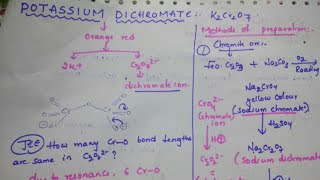 POTASSIUM DICHROMATE :- K2Cr2O7
Orange red
2K+ Cr2O7²⁻
dichromate ion.
JEE How many Cr-O bond lengths
are same in Cr2O7²⁻ ?
due to resonance, 6 Cr-O
Methods of preparation:-
① Chromite ore:-
FeO.Cr2O3 + Na2CO3 O2
Roasting
Na2CrO4
yellow colour
(sodium chromate)
H2SO4
Na2Cr2O7
(sodium dichromate
CrO4²⁻
(chromate ion)
H⊕
Cr2O7²⁻